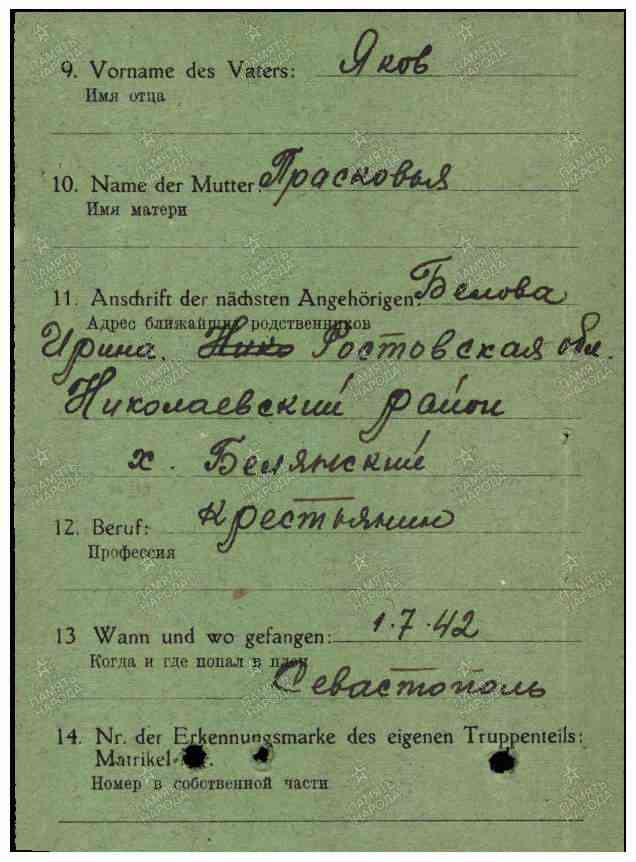 9. Vorname des Vaters: Яков
Имя отца
10. Name der Mutter: Прасковья
Имя матери
11. Anschrift der nächsten Angehörigen: Белова
Адрес ближайших родственников
Ирина. Нико Ростовская обл.
Николаевский район
х. Белянский
12. Beruf: крестьянин
Профессия
13 Wann und wo gefangen: 1.7.42
Когда и где попал в плен
Севастополь
14. Nr. der Erkennungsmarke des eigenen Truppenteils:
Matrikel-
Номер в собственной части
ПАМЯТЬ НАРОДА